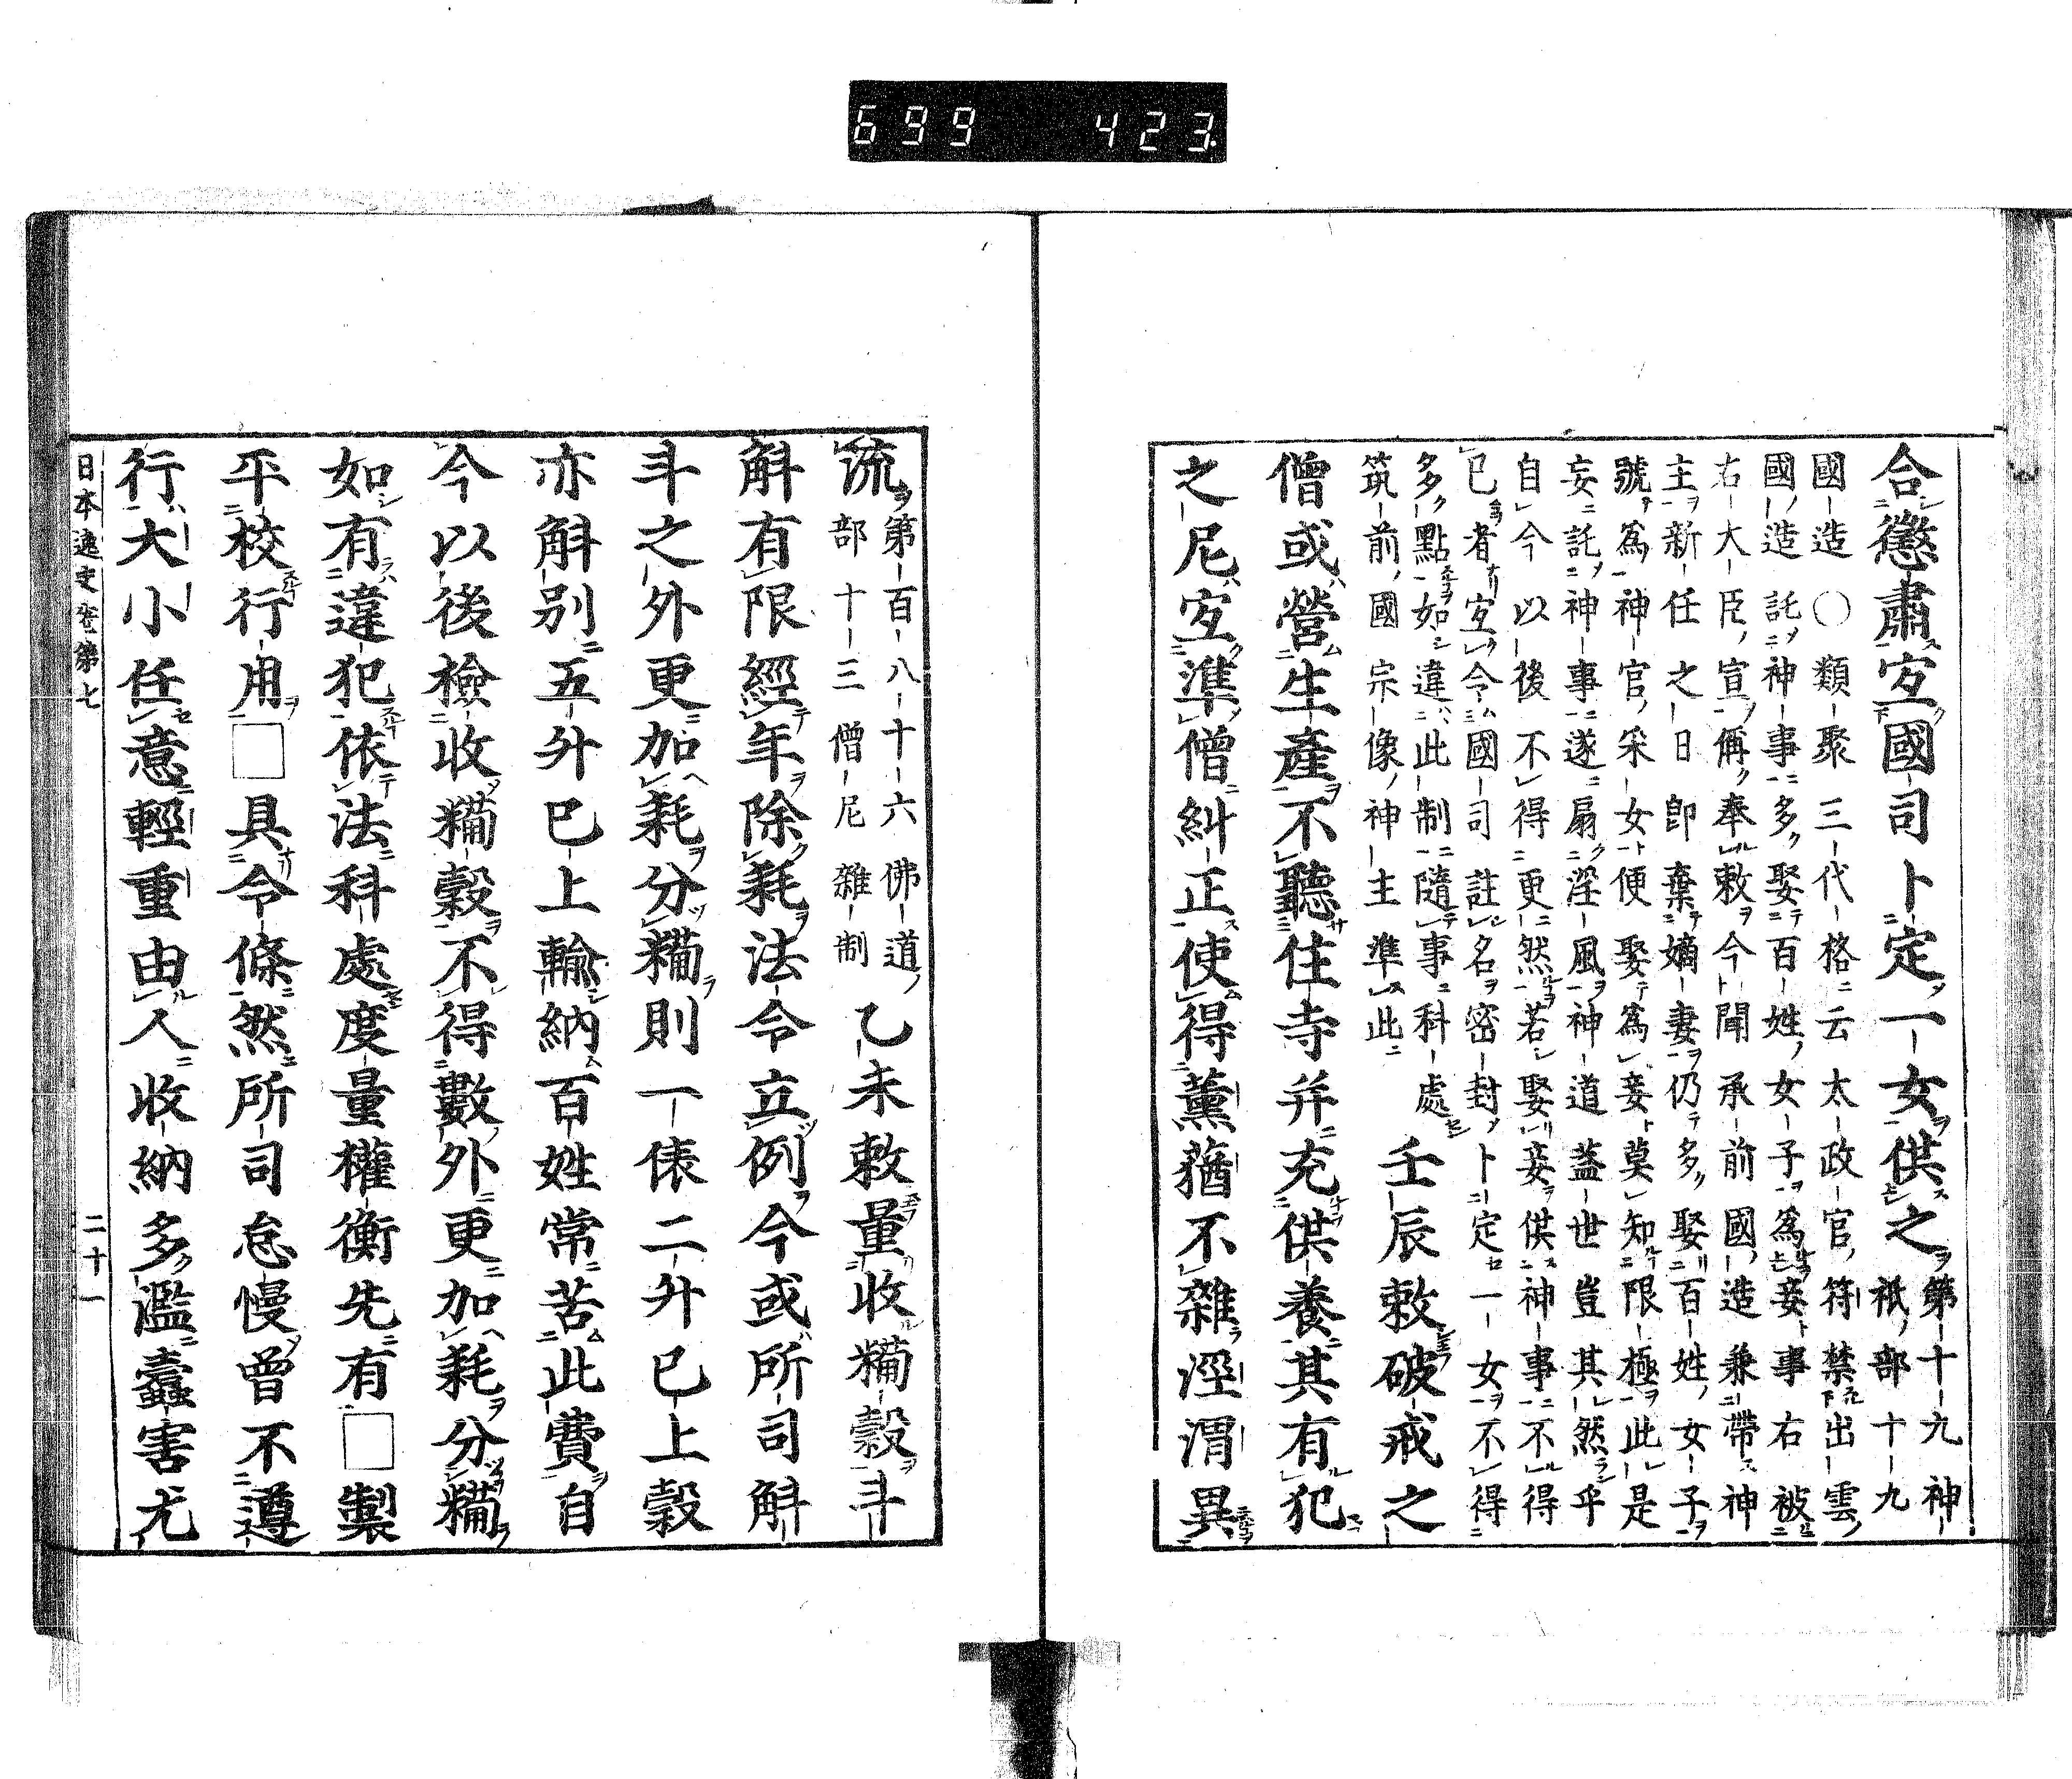 699 423
合懲肅宜國司卜定一女供之第十九神
祇部十九
國造○類聚三代格云太政官符禁出雲
國造託神事多娶百姓女子爲妾事右被
右大臣宣偁奉敕今聞承前國造兼帶神
主新任之日即棄嫡妻仍多娶百姓女子
號爲神宮采女便娶爲妾莫知限極此是
妄託神事遂扇淫風神道益世豈其然乎
自今以後不得更然若娶妾供神事不得
已者宜令國司註名密封卜定一女不得
多點如違此制隨事科處
筑前國宗像神主準此
壬辰敕破戒之
僧或營生產不聽住寺并充供養其有犯
之尼宜準僧糾正使得薰蕕不雜涇渭異
流第百八十六佛道
部十三僧尼雜制
乙未敕量收糒穀斗
斛有限經年除耗法令立例今或所司斛
斗之外更加耗分糒則一俵二升已上穀
亦斛別五升已上輸納百姓常苦此費自
今以後檢收糒穀不得數外更加耗分糒
如有違犯依法科處度量權衡先有□製
平校行用□具令條然所司怠慢曾不遵
行大小任意輕重由人收納多濫蠹害尤
日本逸史卷第七 二十一